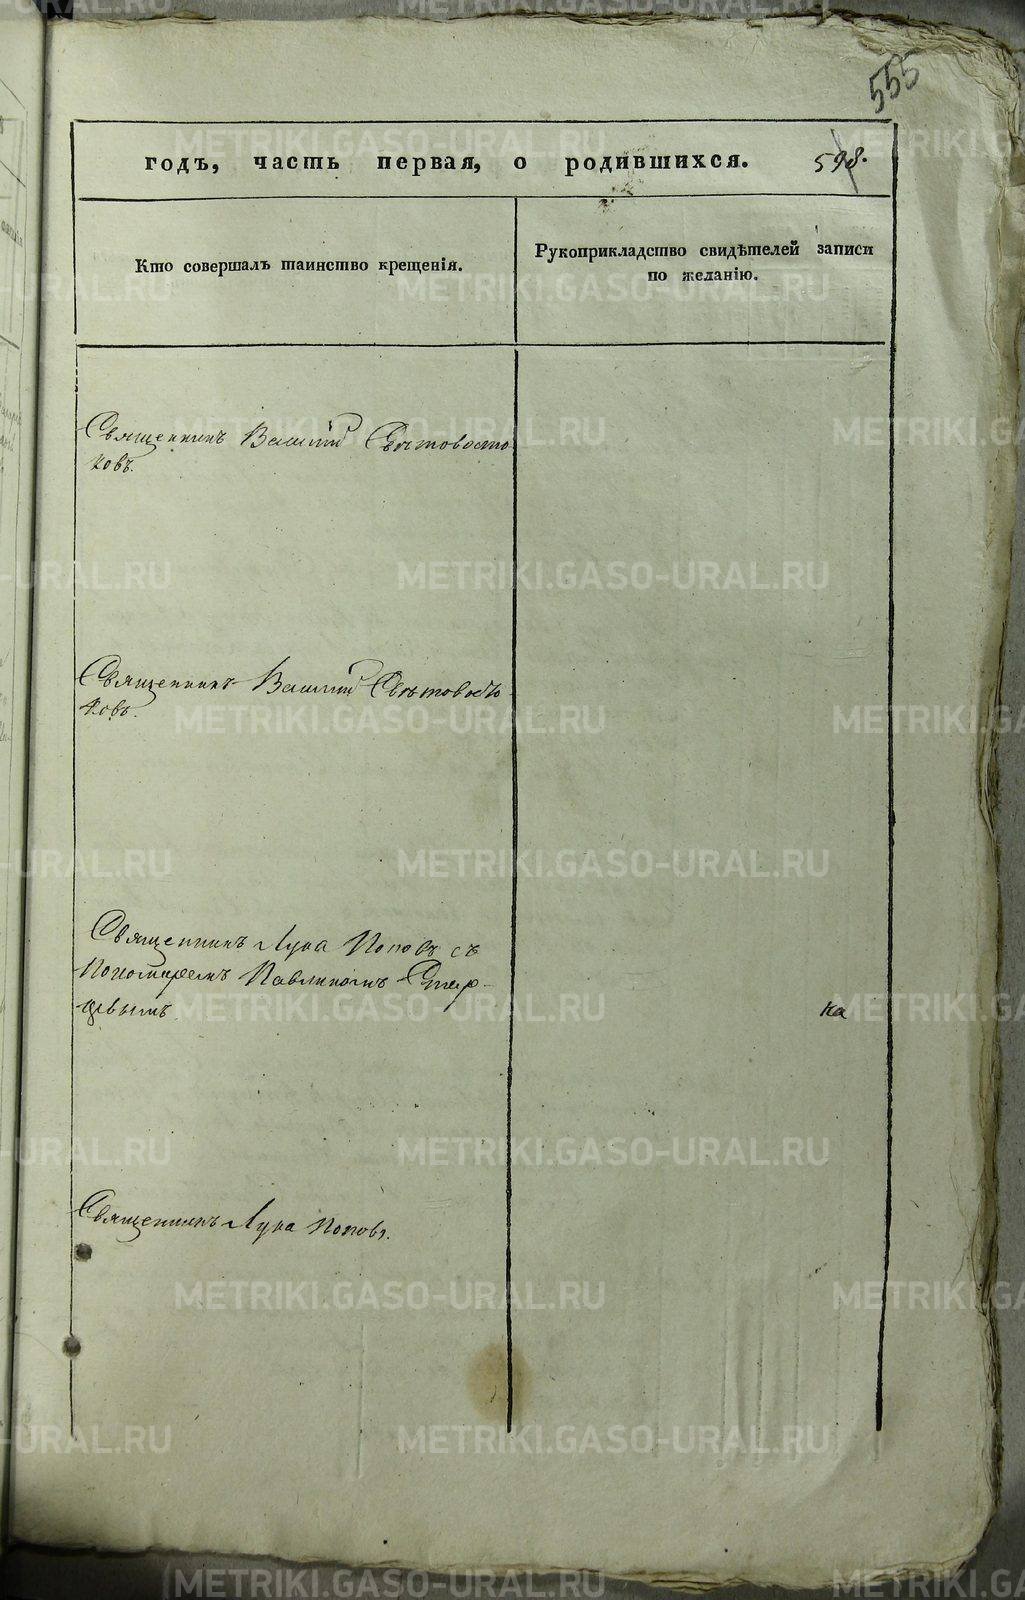 555
годъ, часть первая, о родившихся. 598.
Кто совершалъ таинство крещенія.
Рукоприкладство свидѣтелей записи
по желанію.
Священникъ Василій Свѣтовосто
ковъ.
Священникъ Василій Свѣтовосто
ковъ.
Священникъ Лука Поповъ съ
Пономаремъ Павлиномъ Стар-
цевымъ
ка
Священникъ Лука Поповъ.
METRIKI.GASO-URAL.RU